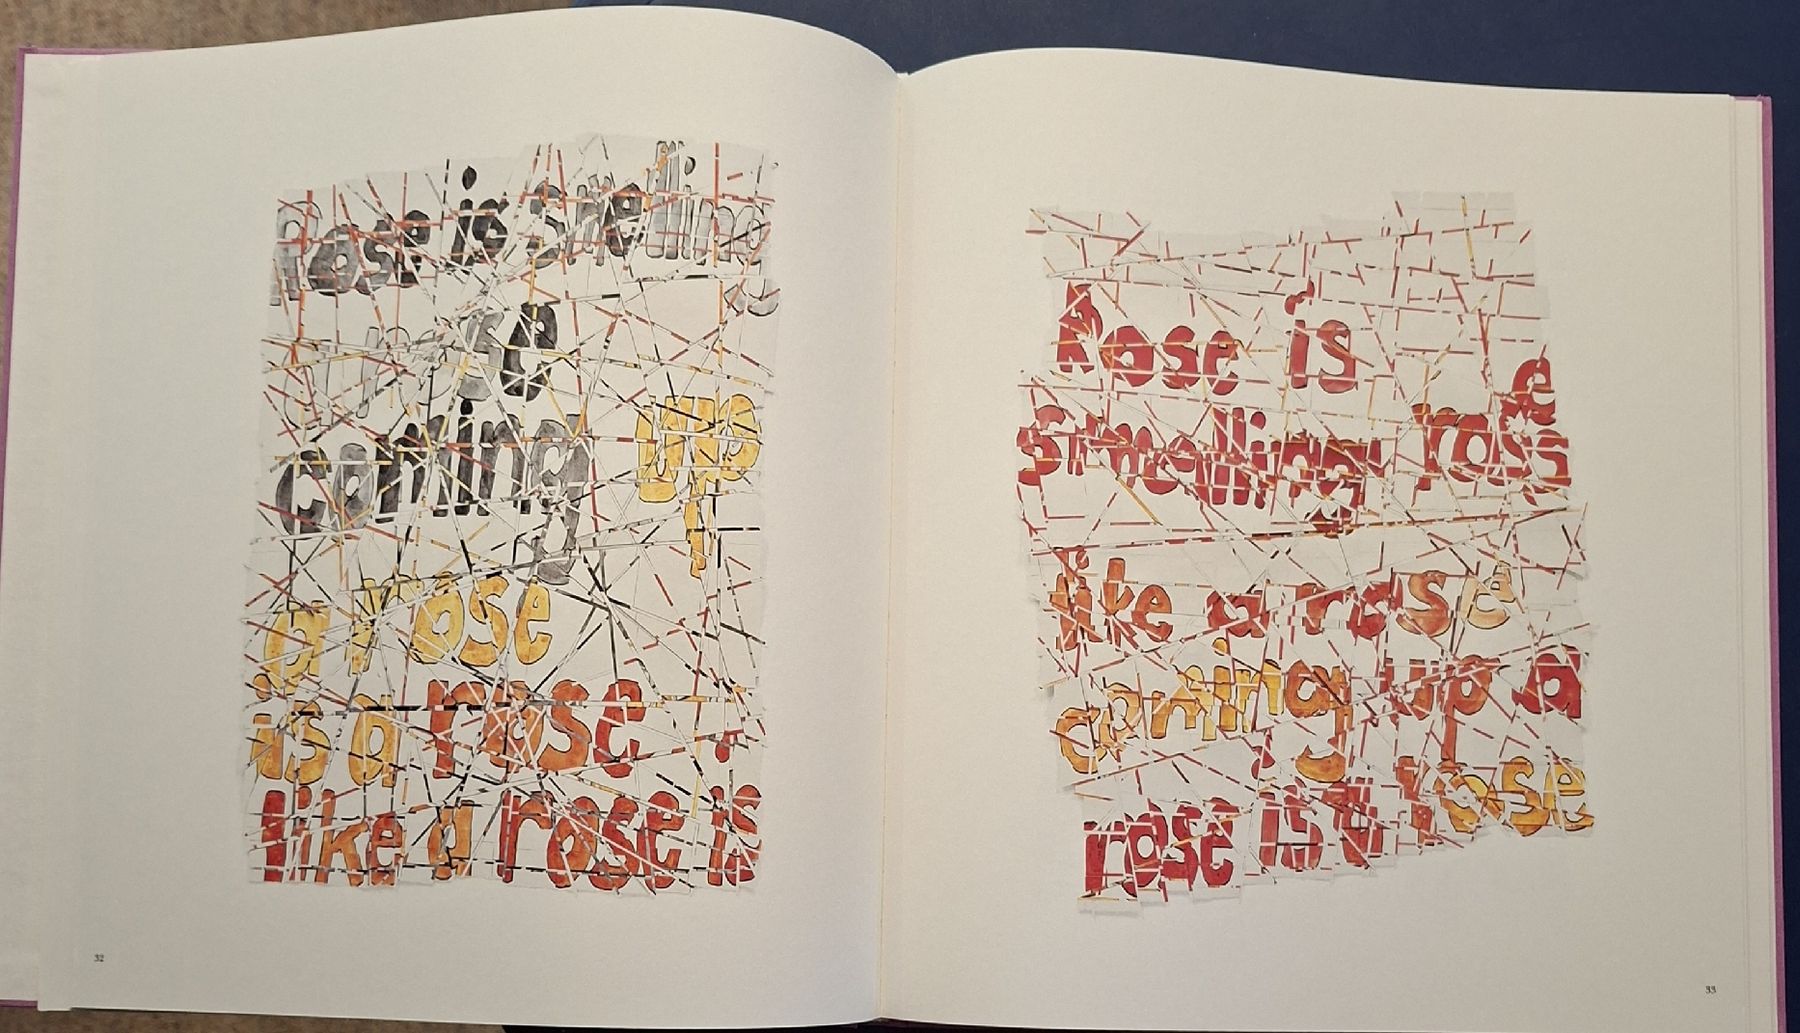 Rose is smelling
rose
coming up
a rose
is a rose
like a rose is
32
Rose is
smelling rose
like a rose
coming up a
rose is a rose
33